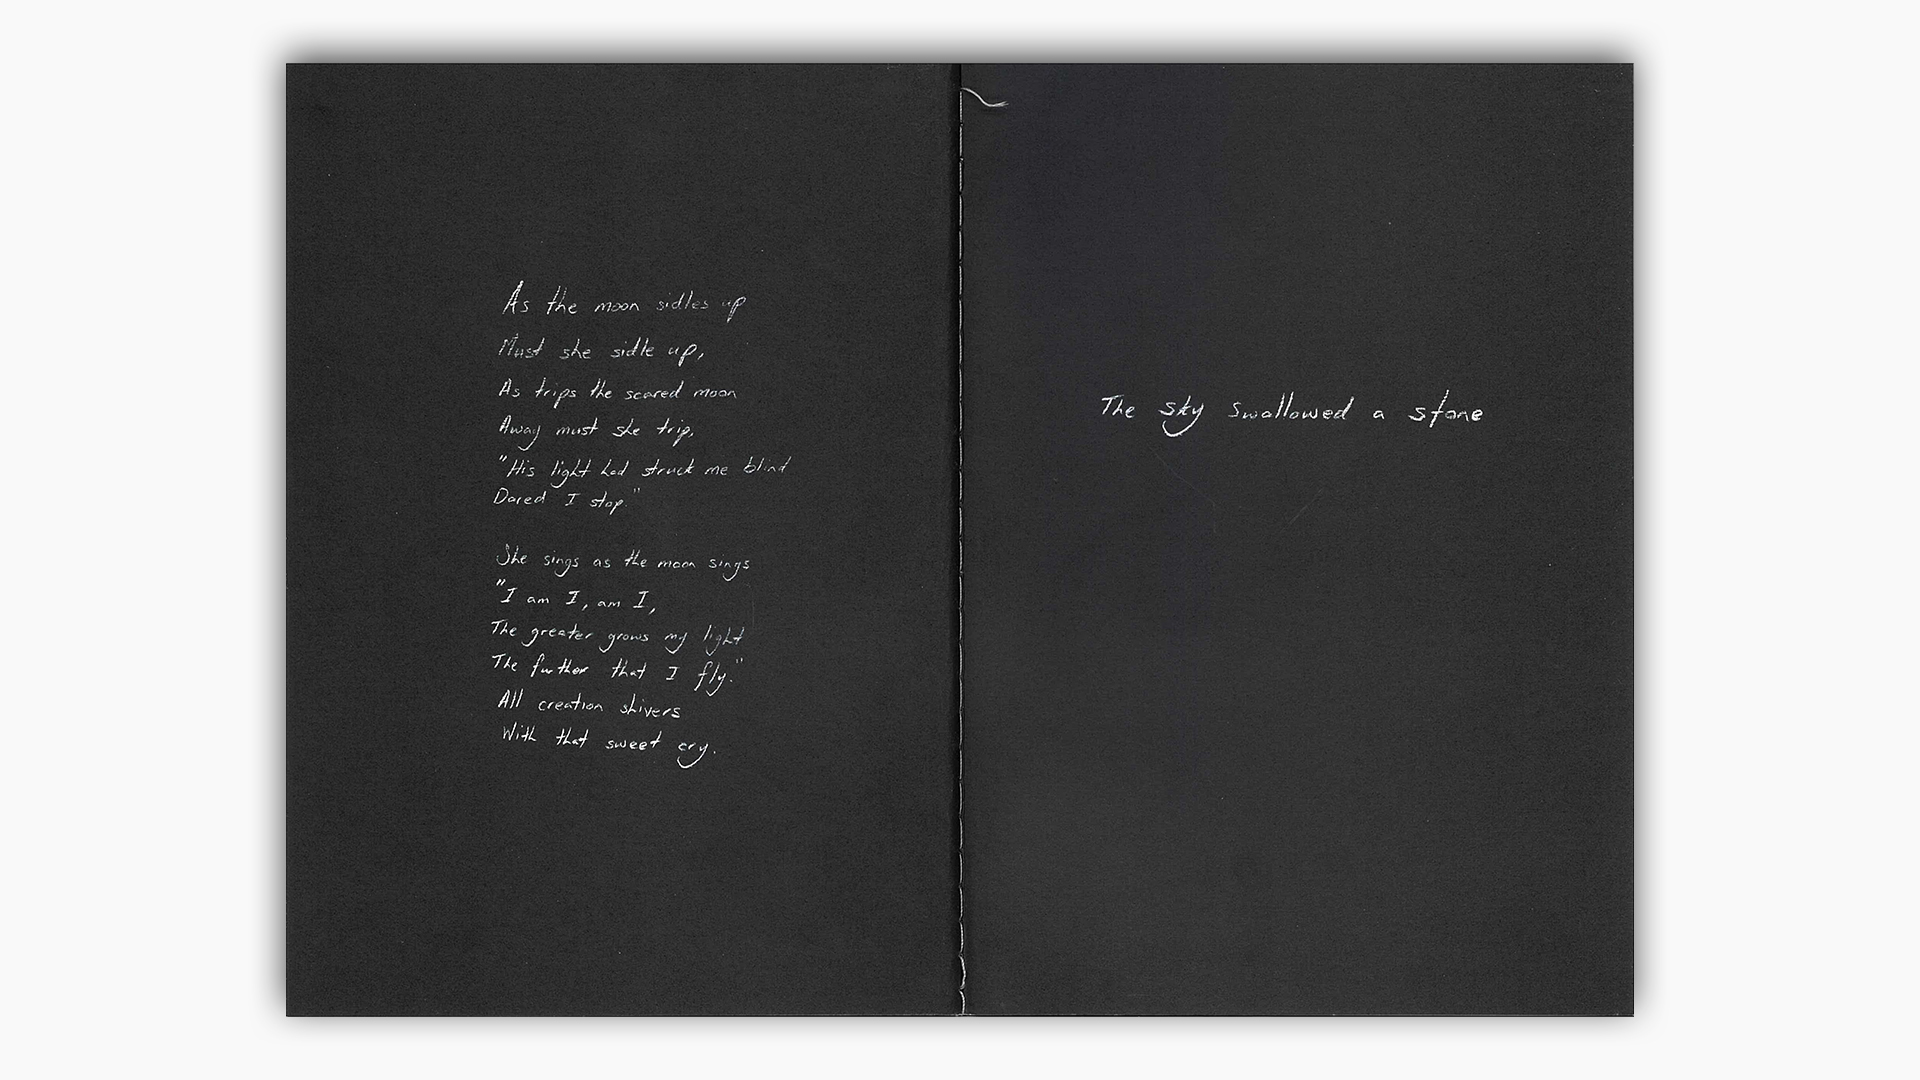 As the moon sidles up
Must she sidle up,
As trips the scared moon
Away must she trip,
"His light had struck me blind
Dared I stop."
She sings as the moon sings
"I am I, am I,
The greater grows my light
The further that I fly."
All creation shivers
With that sweet cry.
The sky swallowed a stone